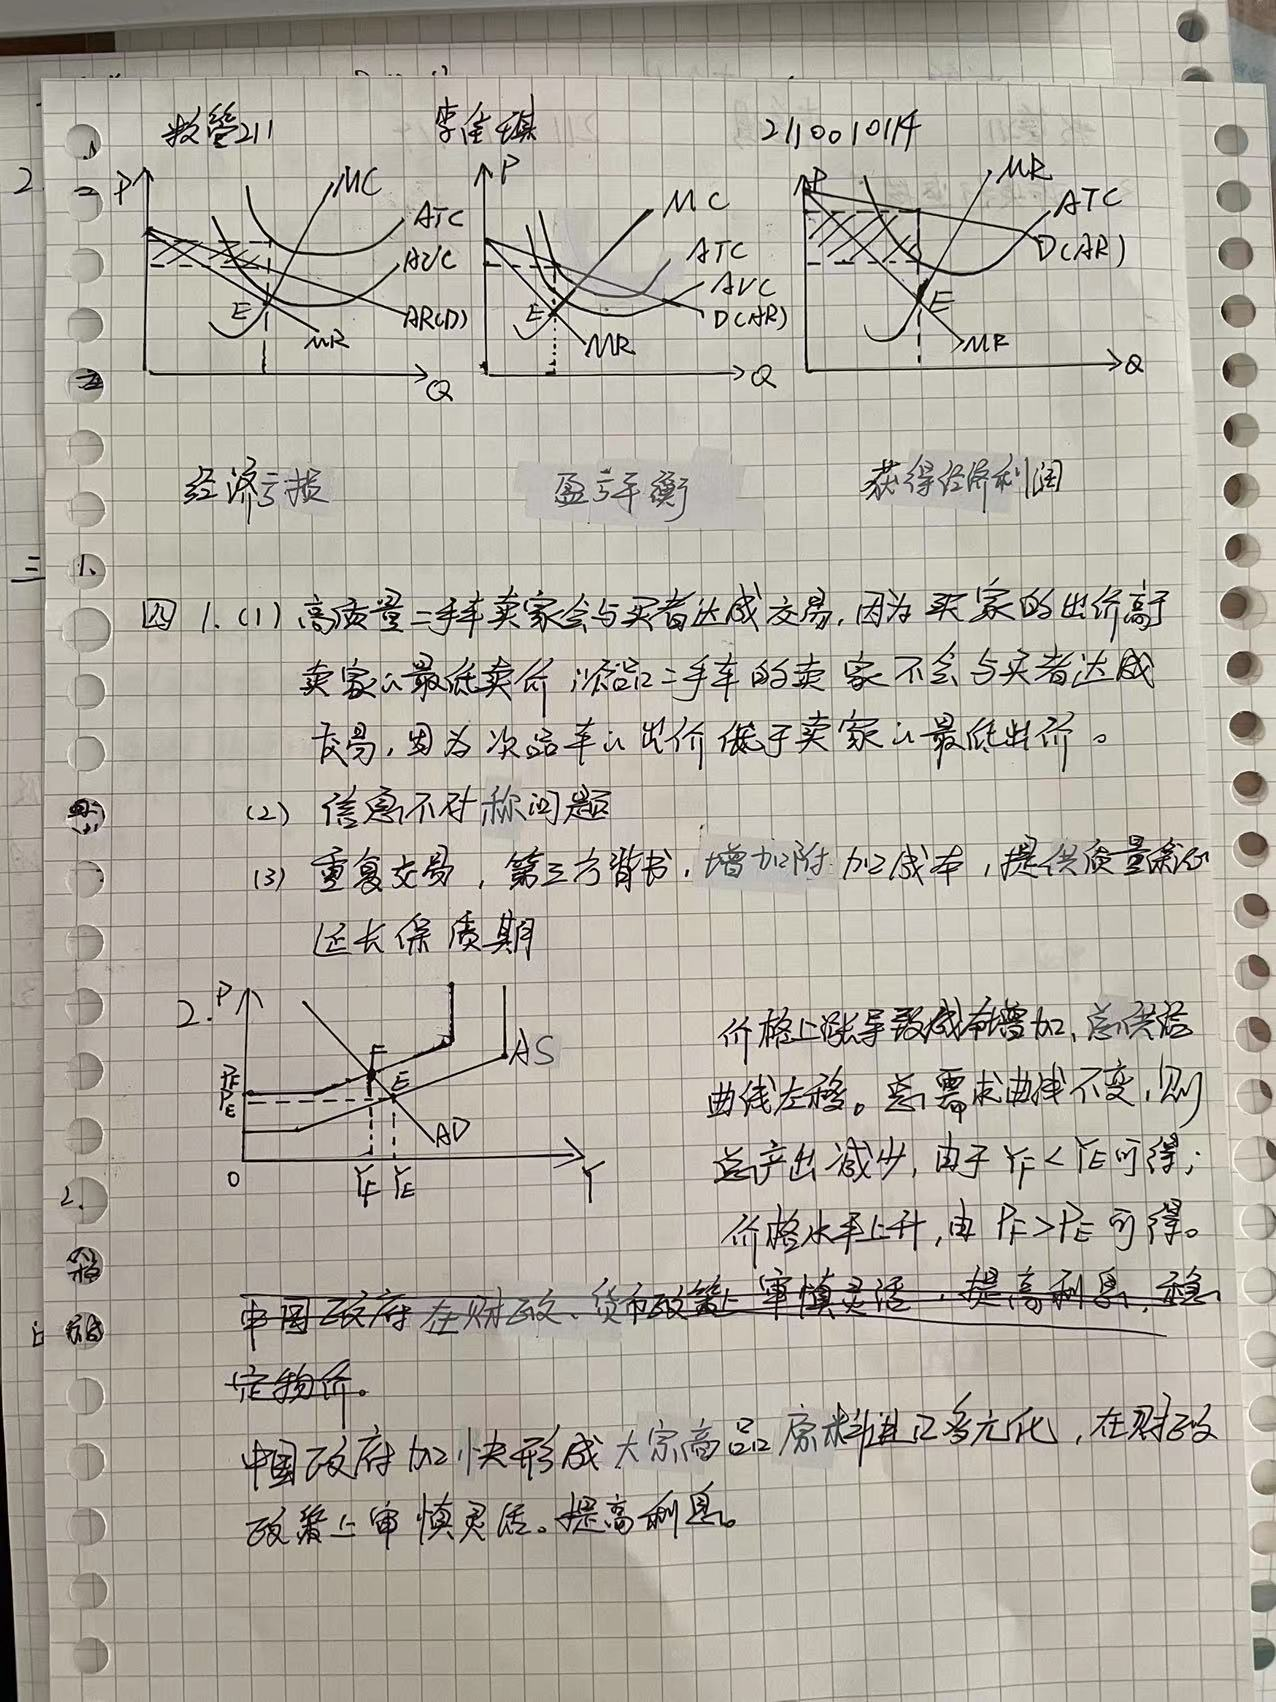 数管211 李金琪 2110010114
2. P MC ATC AVC AR(D) MR E Q
P MC ATC AVC D(AR) MR E Q
P MR ATC D(AR) E MR Q
经济亏损 盈亏平衡 获得经济利润
三 1.
四 1.(1) 高质量二手车卖家会与买者达成交易,因为买家的出价高于
卖家的最低卖价 次品二手车的卖家不会与买者达成
交易,因为次品车的出价低于卖家的最低出价。
(2) 信息不对称问题
(3) 重复交易,第三方背书,增加附加成本,提供质量保证
延长保质期
2. P PF PE F E AS AD O YF YE Y
价格上涨导致成本增加,总供给
曲线左移。总需求曲线不变,则
总产出减少,由于YF<YE可得;
价格水平上升,由PF>PE可得。
中国政府在财政、货币政策上审慎灵活,提高利息,稳
定物价。
中国政府加快形成大宗商品原料进口多元化,在财政
政策上审慎灵活。提高利息。